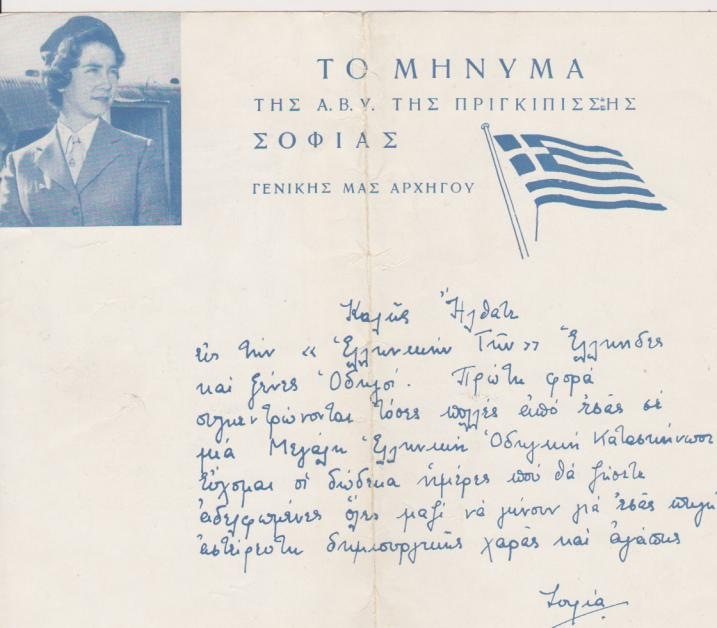 ΤΟ ΜΗΝΥΜΑ
ΤΗΣ Α.Β.Υ. ΤΗΣ ΠΡΙΓΚΙΠΙΣΣΗΣ
ΣΟΦΙΑΣ
ΓΕΝΙΚΗΣ ΜΑΣ ΑΡΧΗΓΟΥ
Καλῶς Ἤλθατε
εἰς τὴν «Ἑλληνικὴν Γῆν» Ἑλληνίδες
καὶ ξένες Ὁδηγοί. Πρώτη φορὰ
συγκεντρώνονται τόσες πολλὲς ἀπὸ ἐσᾶς σὲ
μιὰ Μεγάλη Ἑλληνικὴ Ὁδηγικὴ Κατασκήνωσι
Εὔχομαι οἱ δώδεκα ἡμέρες ποὺ θὰ ζήσετε
ἀδελφωμένες ὅλες μαζὶ νὰ γίνουν γιὰ ἐσᾶς πηγὴ
ἀστείρευτη δημιουργικῆς χαρᾶς καὶ ἀγάπης
Σοφία